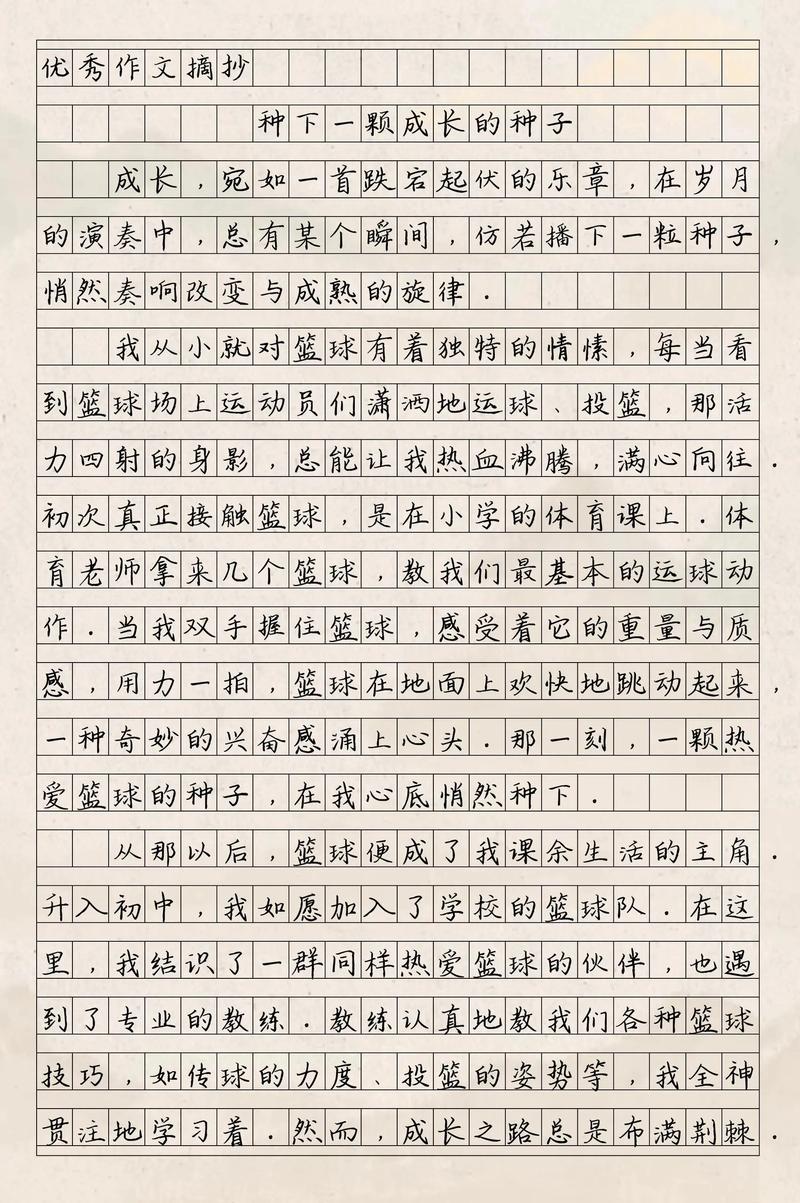 优秀作文摘抄
种下一颗成长的种子
成长，宛如一首跌宕起伏的乐章，在岁月
的演奏中，总有某个瞬间，仿若播下一粒种子，
悄然奏响改变与成熟的旋律．
我从小就对篮球有着独特的情愫，每当看
到篮球场上运动员们潇洒地运球、投篮，那活
力四射的身影，总能让我热血沸腾，满心向往．
初次真正接触篮球，是在小学的体育课上．体
育老师拿来几个篮球，教我们最基本的运球动
作．当我双手握住篮球，感受着它的重量与质
感，用力一拍，篮球在地面上欢快地跳动起来，
一种奇妙的兴奋感涌上心头．那一刻，一颗热
爱篮球的种子，在我心底悄然种下．
从那以后，篮球便成了我课余生活的主角．
升入初中，我如愿加入了学校的篮球队．在这
里，我结识了一群同样热爱篮球的伙伴，也遇
到了专业的教练．教练认真地教我们各种篮球
技巧，如传球的力度、投篮的姿势等，我全神
贯注地学习着．然而，成长之路总是布满荆棘．